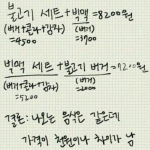 불고기 세트 + 빅맥 = 8200원
(버거+콜라+감자) (버거)
=4500 =3700
빅맥 세트 + 불고기 버거 = 7200원
(버거+콜라+감자) (버거)
=5200
결론: 나오는 음식은 같은데
가격이 천원이나 차이가 남